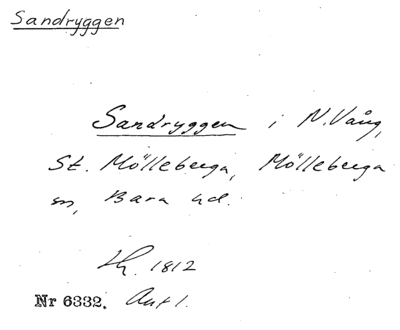 Sandryggen
Sandryggen i N. Vång,
St. Mölleberga, Mölleberga
sn, Bara hd.
1812
Nr 6332. Akt 1.